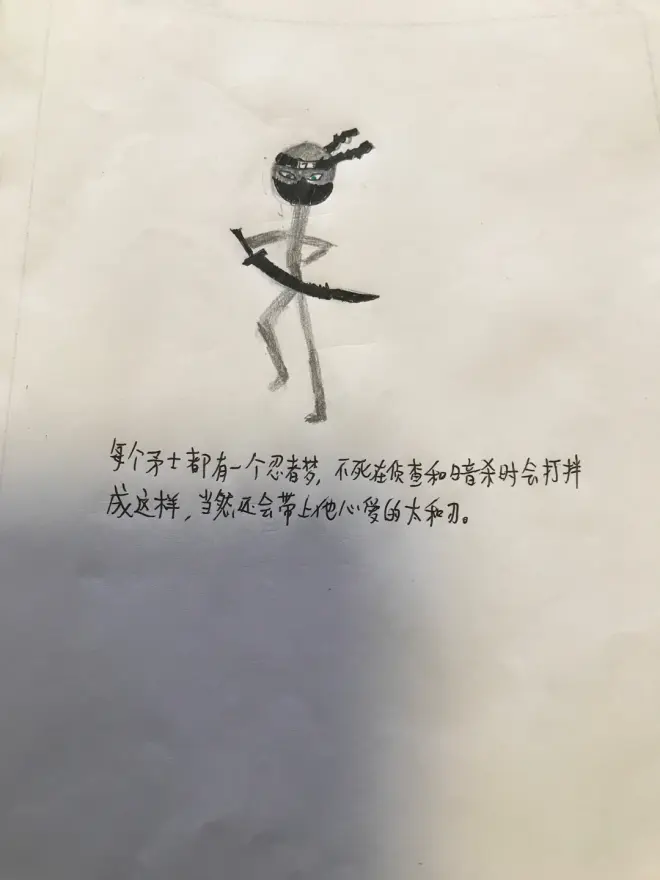 每个矛士都有一个忍者梦,不死在侦查和暗杀时会打拌
成这样,当然还会带上他心爱的太和刃。